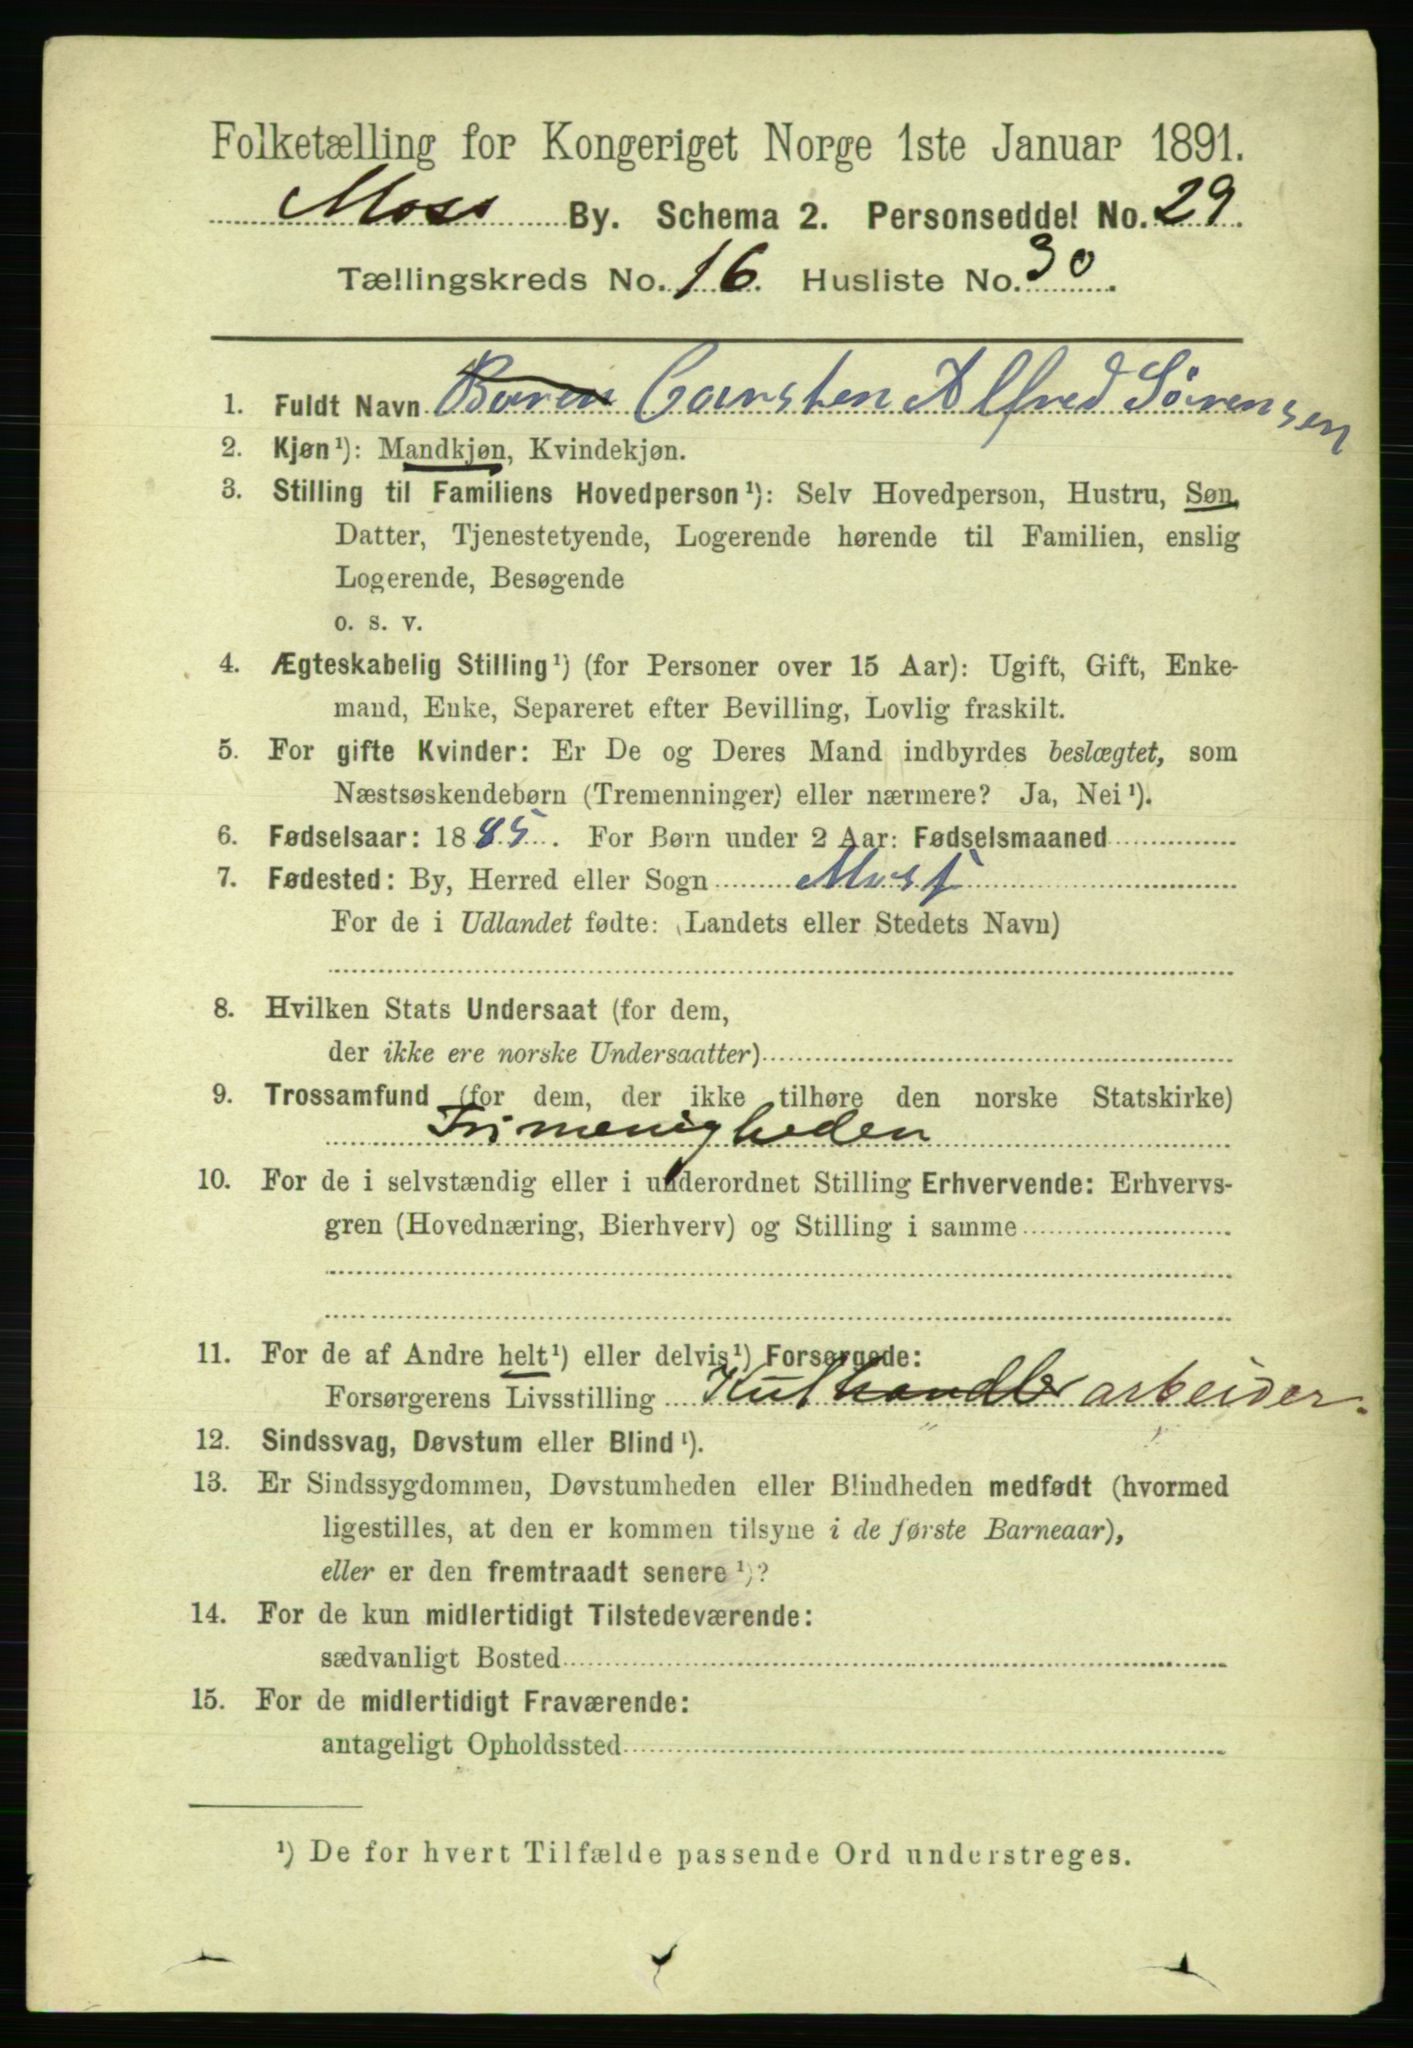 Folketælling for Kongeriget Norge 1ste Januar 1891.
Moss By. Schema 2. Personseddel No. 29.
Tællingskreds No. 16. Husliste No. 30.
1. Fuldt Navn Carsten Alfred Sörensen
2. Kjøn¹): Mandkjøn, Kvindekjøn.
3. Stilling til Familiens Hovedperson¹): Selv Hovedperson, Hustru, Søn,
Datter, Tjenestetyende, Logerende hørende til Familien, enslig
Logerende, Besøgende
o. s. v.
4. Ægteskabelig Stilling¹) (for Personer over 15 Aar): Ugift, Gift, Enke-
mand, Enke, Separeret efter Bevilling, Lovlig fraskilt.
5. For gifte Kvinder: Er De og Deres Mand indbyrdes beslægtet, som
Næstsøskendebørn (Tremenninger) eller nærmere? Ja, Nei¹).
6. Fødselsaar: 1885. For Børn under 2 Aar: Fødselsmaaned
7. Fødested: By, Herred eller Sogn
For de i Udlandet fødte: (Landets eller Stedets Navn)
8. Hvilken Stats Undersaat (for dem,
der ikke ere norske Undersaatter)
9. Trossamfund (for dem, der ikke tilhøre den norske Statskirke)
Frimenigheden
10. For de i selvstændig eller i underordnet Stilling Erhvervende: Erhvervs-
gren (Hovednæring, Bierhverv) og Stilling i samme
11. For de af Andre helt¹) eller delvis¹) Forsørgede:
Forsørgerens Livsstilling Kulhandler arbeider.
12. Sindssvag, Døvstum eller Blind¹).
13. Er Sindssygdommen, Døvstumheden eller Blindheden medfødt (hvormed
ligestilles, at den er kommen tilsyne i de første Barneaar),
eller er den fremtraadt senere¹)?
14. For de kun midlertidigt Tilstedeværende:
sædvanligt Bosted
15. For de midlertidigt Fraværende:
antageligt Opholdssted
¹) De for hvert Tilfælde passende Ord understreges.